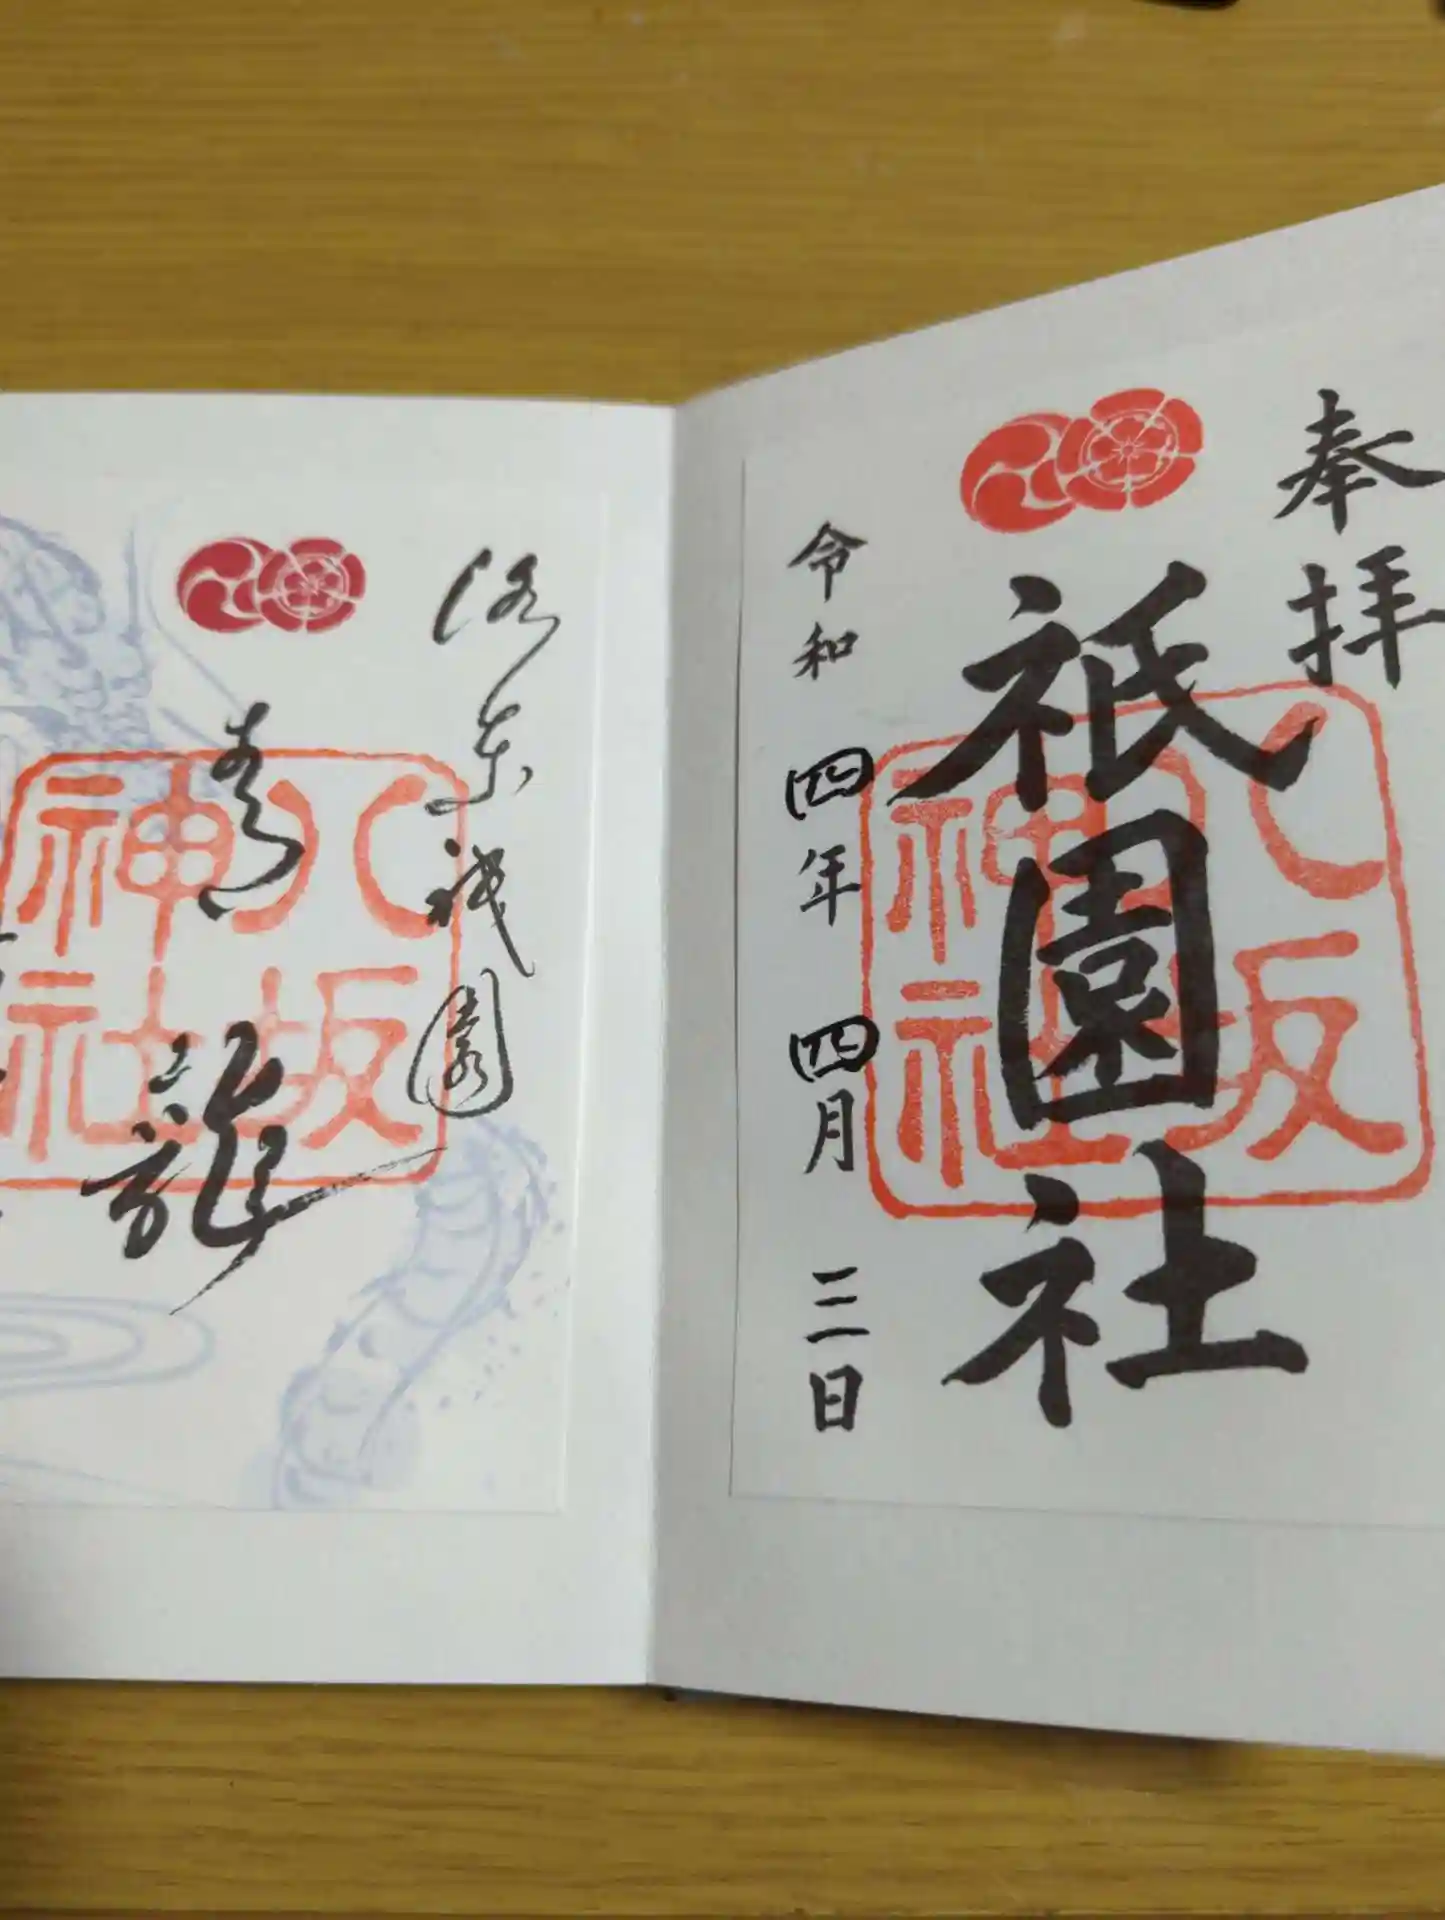 奉拝
祇園社
八坂神社
令和四年四月三日
洛東祇園
青龍
八坂神社